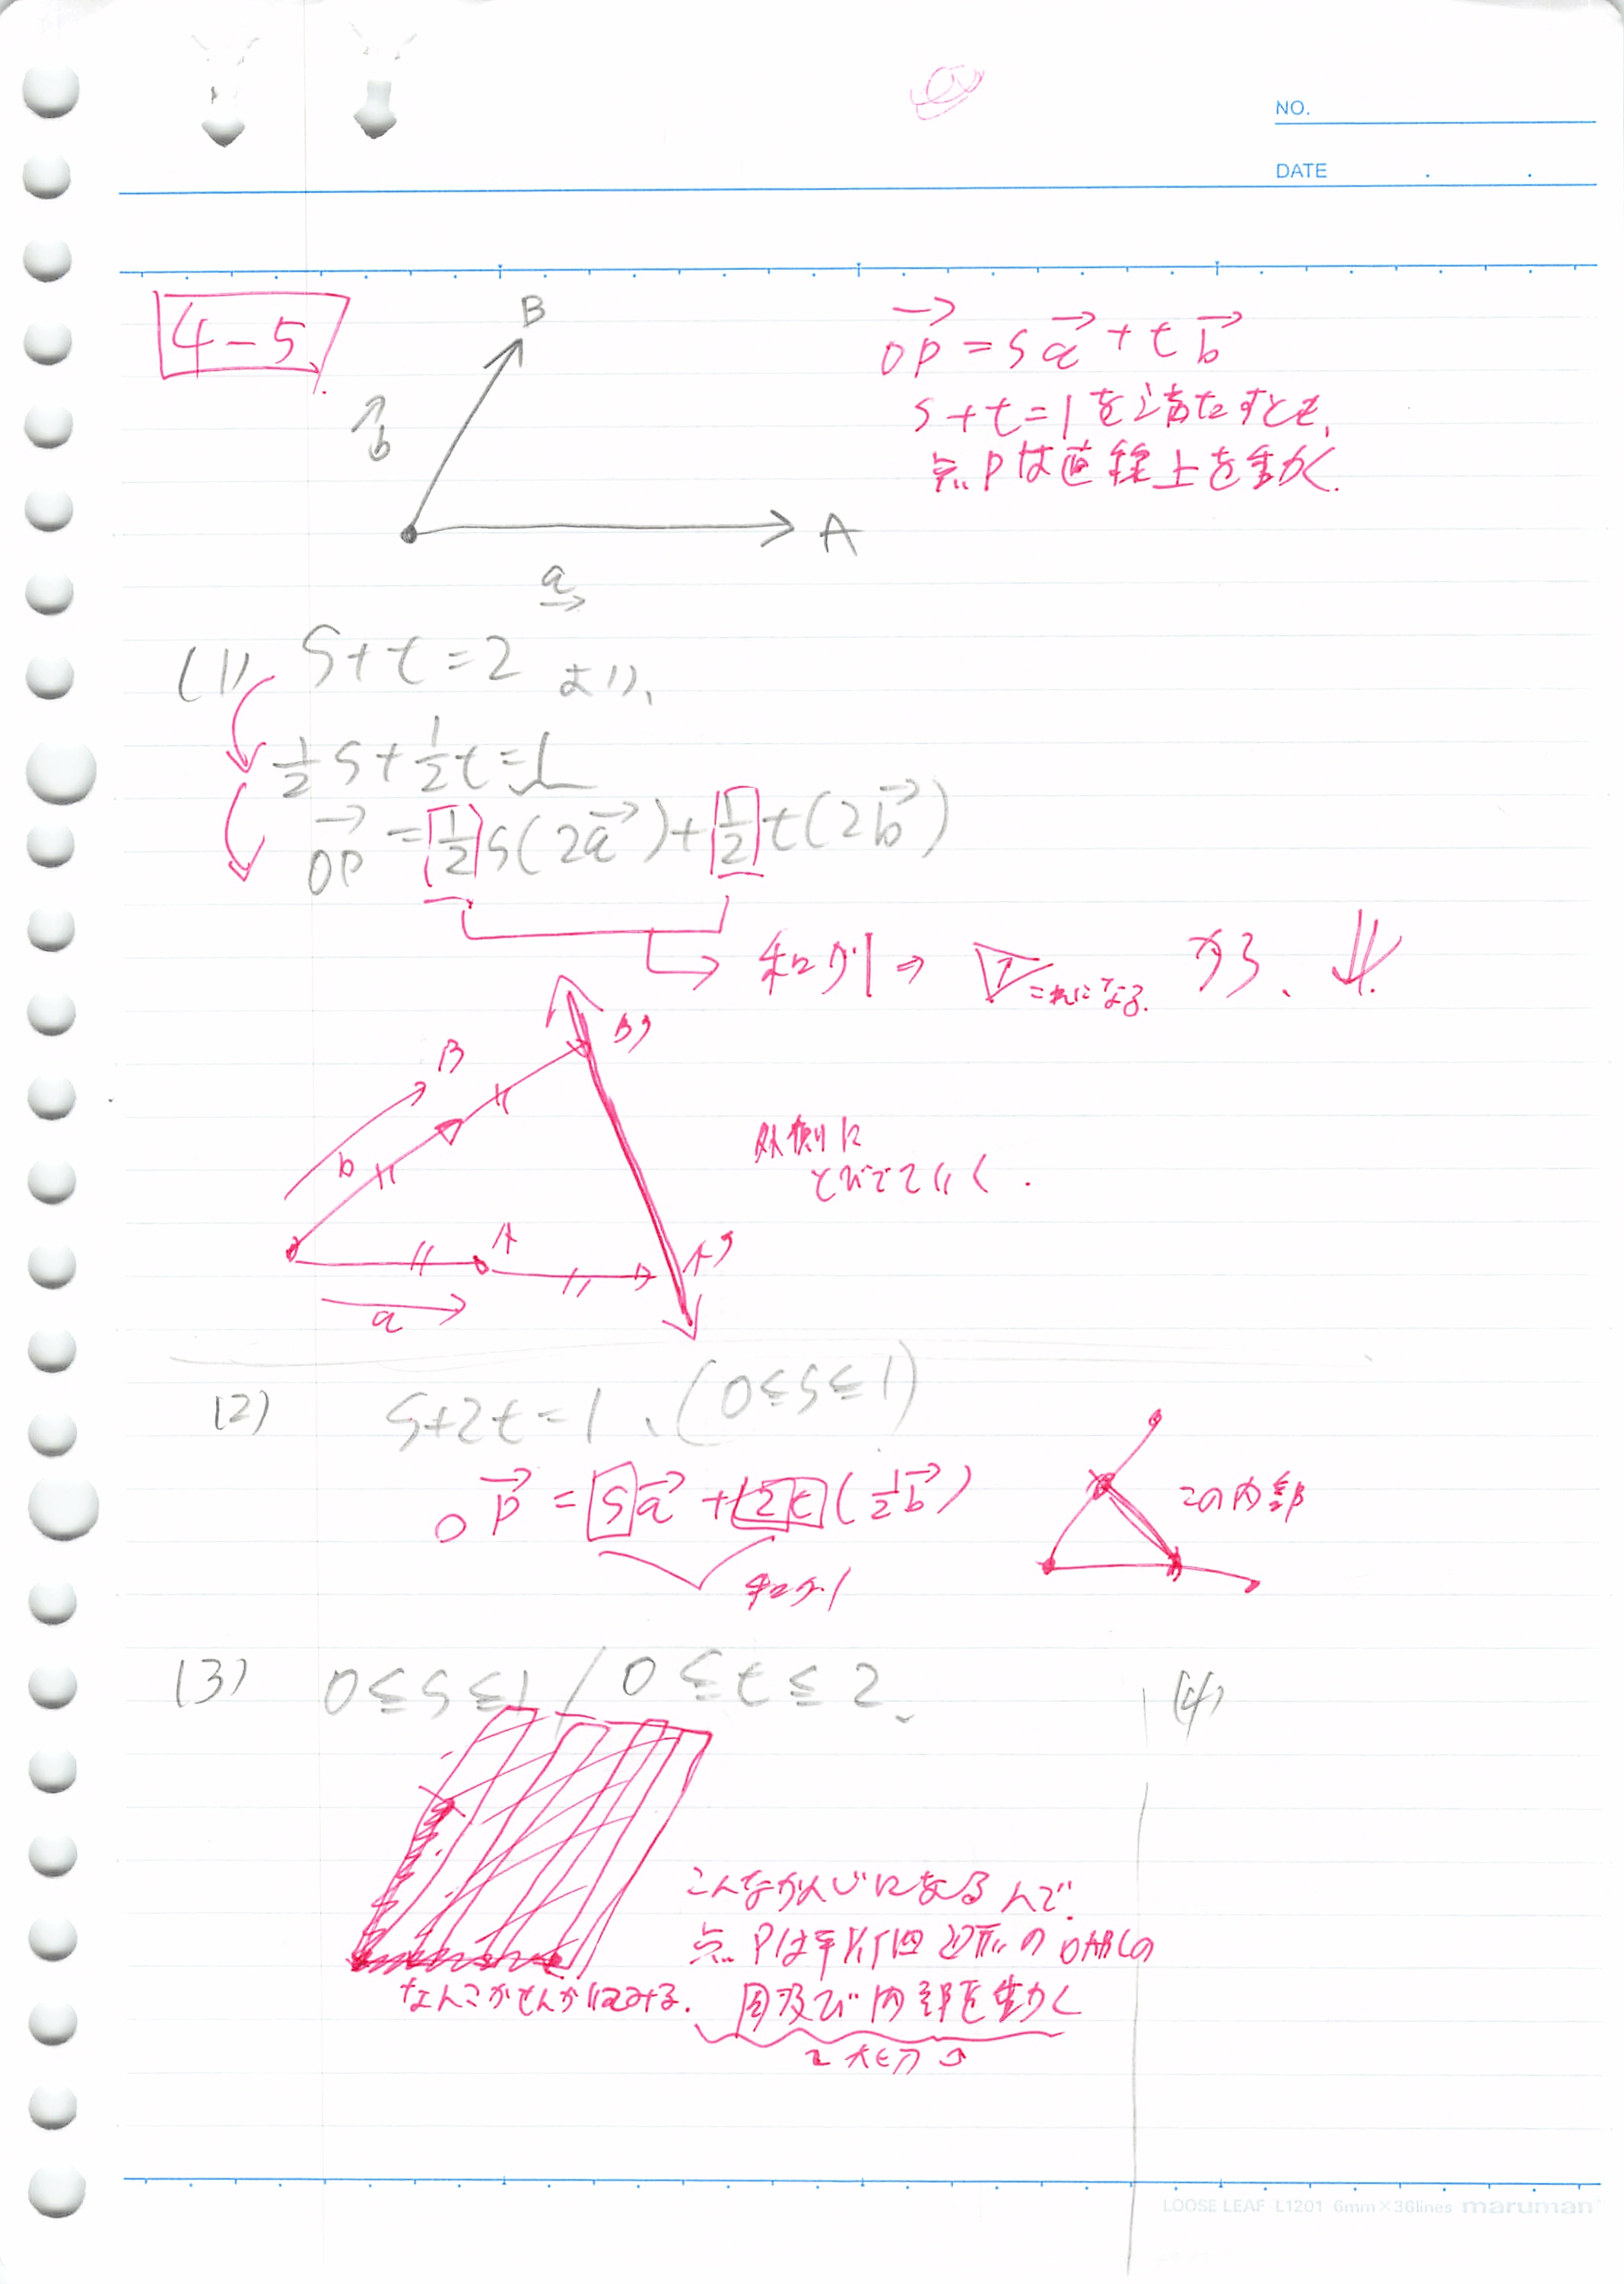 NO.
DATE
4-5
B
b
A
a
OP = sa + tb
s+t=1を満たすとき、
点Pは直線上を動く.
(1) s+t=2 より、
1/2 s + 1/2 t = 1
OP = 1/2 s(2a) + 1/2 t(2b)
和が1 ⇒ これになる. から、
B'
B
b
A
A'
a
外側に
とびでていく.
(2) s+2t=1、(0≦s≦1)
OP = sa + 2t(1/2 b)
和が1
この内部
(3) 0≦s≦1 / 0≦t≦2、
(4)
こんなかんじになるんで、
点Pは平行四辺形の
周及び内部を動く
LOOSE LEAF L1201 6mm×36lines maruman